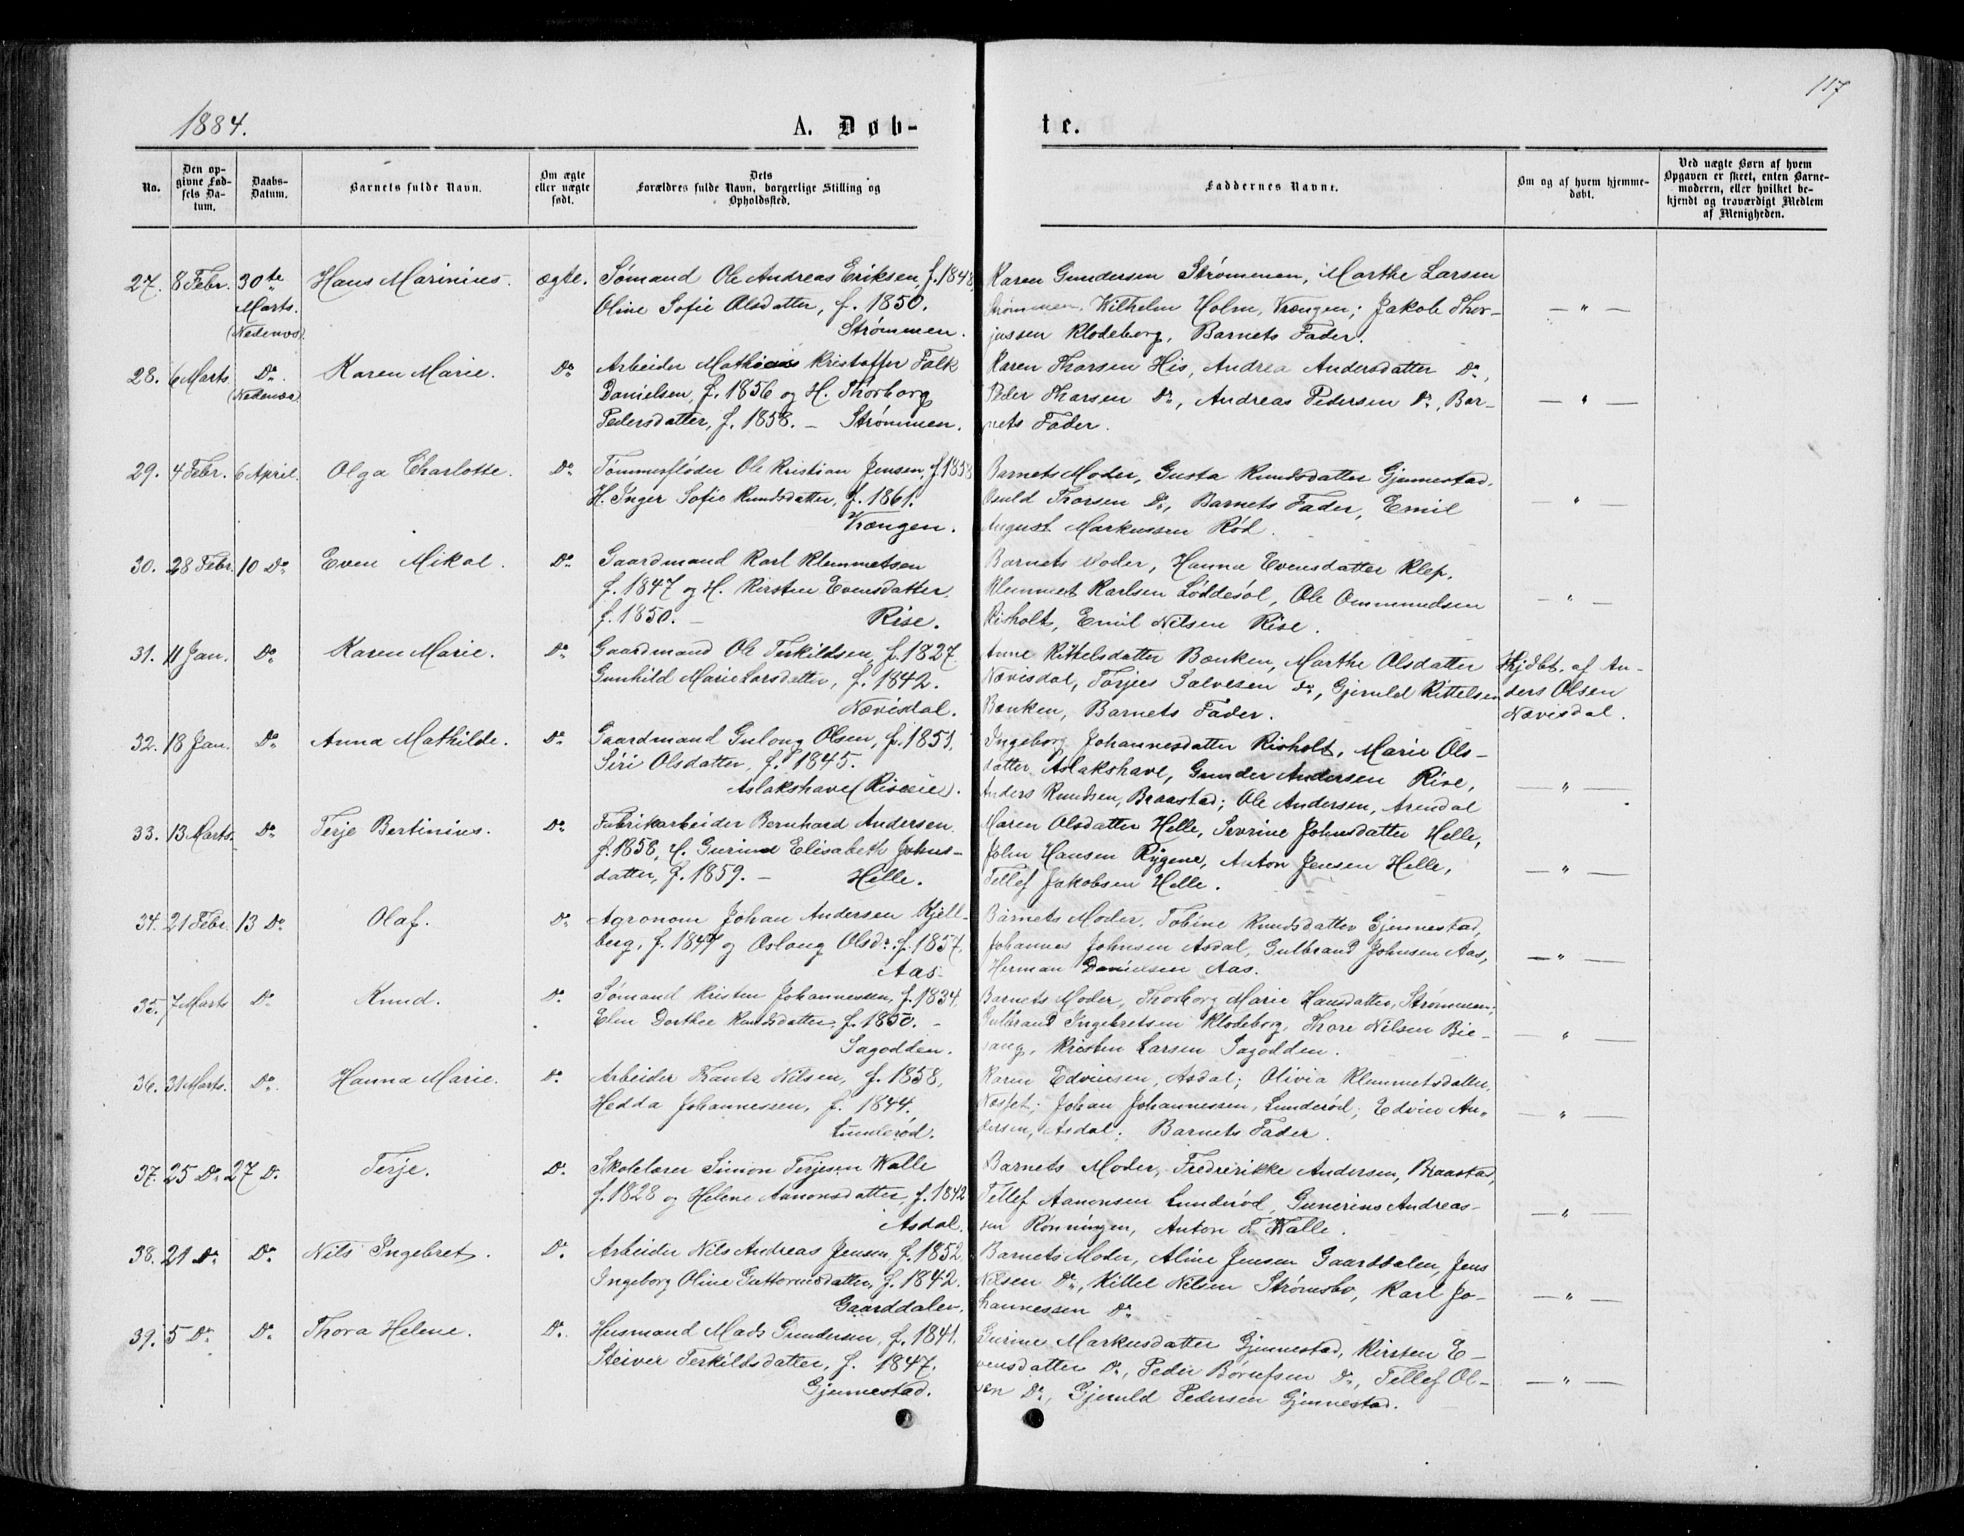 117
1884.
A. Døb-
te.
No.
Den op-
givne Fød-
sels Da-
tum.
Daabs-
Datum.
Barnets fulde Navn.
Om ægte
eller uægte
født.
Dets
Forældres fulde Navn, borgerlige Stilling og
Opholdssted.
Faddernes Navne.
Om og af hvem hjemme-
døbt.
Ved uægte Børn af hvem
Opgaven er skeet, enten Barne-
moderen, eller hvilket be-
kjendt og troværdigt Medlem
af Menigheden.
27. 8 Febr. 30te Hans Marinius. ægte. Sømand Ole Andreas Eriksen, f. 1848, Karen Gundersen Strømmen, Marthe Larsen
Marts. Oline Sofie Olsdatter, f. 1850. Strømmen, Wilhelm Holm, Vrængen; Jakob Thor- — " —
(Nedenæs). Strømmen. jussen Klodeborg, Barnets Fader.
28. 6 Marts. Do. Karen Marie. Do Arbeider Mathias Kristoffer Falk Karen Thorsen His, Andrea Andersdatter Do,
(Nedenæs) Danielsen, f. 1856 og H. Thorborg Peder Thorsen Do, Andreas Pedersen Do, Bar- — " —
Pedersdatter, f. 1858. – Strømmen. nets Fader.
29. 4 Febr. 6 April. Olga Charlotte. Do Tømmerfløder Ole Kristian Jensen, f. 1858 Barnets Moder, Gusta Knudsdatter Gjennestad,
H. Inger Sofie Knudsdatter, f. 1861. Osuld Thorsen Do, Barnets Fader, Emil — " —
Vrængen. August Markussen Rød.
30. 28 Febr. 10 Do Even Mikal. Do Gaardmand Karl Klemmetsen Barnets Moder, Hanna Evensdatter Klep,
f. 1847 og H. Kirsten Evensdatter, Klemmet Karlsen Løddesøl, Ole Ommundsen — " —
f. 1850. – Rise. Risholt, Emil Nilsen Rise.
31. 11 Jan. Do Karen Marie. Do Gaardmand Ole Terkildsen, f. 1827 Anne Kittelsdatter Bænken, Marthe Olsdatter Hjdbt. af An-
Gunhild Marie Larsdatter, f. 1842. Nævisdal, Torjes Salvesen Do, Gjeruld Kittelsen ders Olsen
Nævisdal. Bænken, Barnets Fader. Nævisdal.
32. 18 Jan. Do Anna Mathilde. Do Gaardmand Gulong Olsen, f. 1851. Ingeborg Johannesdatter Risholt, Marie Ols-
Siri Olsdatter, f. 1845. datter Aslakshave, Gunder Andersen Rise, — " —
Aslakshave (Riseeie). Anders Knudsen, Braastad; Ole Andersen, Arendal
33. 13 Marts. Do Terje Bertinius. Do Fabrikarbeider Bernhard Andersen Maren Olsdatter Helle, Sevrine Johnsdatter Helle,
f. 1858, H. Gurine Elisabeth Johns- John Hansen Rygene, Anton Jensen Helle, — " —
datter, f. 1859. – Helle. Tellef Jakobsen Helle.
34. 21 Febr. 13 Do Olaf. Do Agronom Johan Andersen Kjell- Barnets Moder, Tobine Knudsdatter Gjennestad,
berg, f. 1847 og Aslaug Olsdr. f. 1857. Johannes Johnsen Asdal, Gulbrand Johnsen Aas, — " —
Aas. Herman Danielsen Aas.
35. 7 Marts Do. Knud. Do. Sømand Kristen Johannessen, f. 1834, Barnets Moder, Thorborg Marie Hansdatter, Strømmen;
Elen Dorthee Knudsdatter, f. 1850. – Gulbrand Ingebretsen Klodeborg, Thore Nilsen Bie- — " —
Sagodden. sang, Kristen Larsen Sagodden.
36. 31 Marts. Do. Hanna Marie. Do. Arbeider Nilsen, f. 1858, Karen Edvinsen, Asdal; Olivia Klemmetsdatter,
Hedda Johannessen, f. 1844, Næsset; Johan Johannessen, Lunderød; Edvin An- — " —
Lunderød. dersen, Asdal; Barnets Fader.
37. 25 Do 27 D. Terje. Do. Skolelærer Simon Terjesen Walle Barnets Moder, Fredrerikke Andersen, Braastad,
f. 1828 og Helene Aanonsdatter, f. 1842 Tellef Aanonsen Lunderød, Gunerius Andreas- — " —
Asdal. sen Rønningen, Anton T. Walle.
38. 21 Do Do. Nils Ingebret. Do. Arbeider Nils Andreas Jensen, f. 1852. Barnets Moder, Aline Jensen Gaarddalen, Jens
Ingeborg Oline Guttormsdatter, f. 1842. Nilsen Do, Kittel Nilsen Strømsbo, Karl Jo- — " —
Gaarddalen. hannessen Do
39. 5 Do. Do. Thora Helene. Do. Husmand Mads Gundersen, f. 1841. Gurine Markusdatter Gjennestad, Kirsten E-
Steiver Terkildsdatter, f. 1847. vensdatter Do, Peder Børufsen Do, Tellef Ol- — " —
Gjennestad. sen Do, Gjeruld Pedersen Gjennestad.